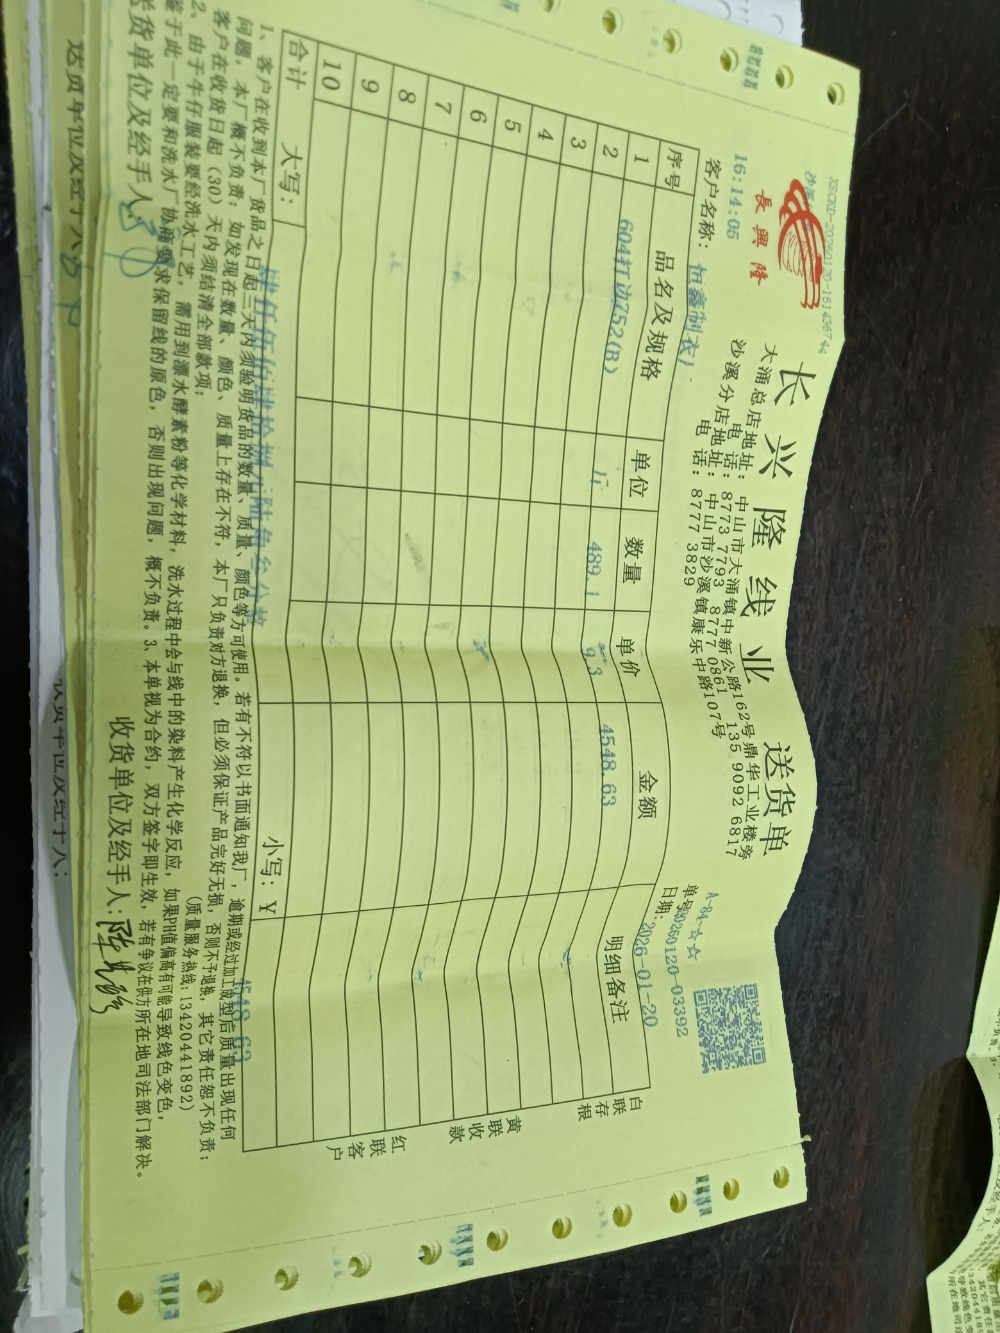 XSCKD-20260120-16143674
長興隆
16:14:05
长兴隆线业 送货单
大涌总店地址: 中山市大涌镇中新公路162号鼎华工业楼旁
电话: 8773 7793 8777 0861 135 9092 6817
沙溪分店地址: 中山市沙溪镇康乐中路107号
电话: 8777 3829
A-84-☆☆
单号:20260120-03392
客户名称: 恒鑫制衣
日期: 2026-01-20
序号 品名及规格 单位 数量 单价 金额 明细备注
1 604打边752(B) 斤 489.1 9.3 4548.63
2
3
4
5
6
7
8
9
10
合计 大写: 肆仟伍佰肆拾捌元陆角叁分 小写: ¥ 4548.63
白联存根
黄联收款
红联客户
1、客户在收到本厂货品之日起三天内须验明货品的数量、质量、颜色等方可使用。若有不符以书面通知我厂，逾期或经过加工成型后质量出现任何
问题，本厂概不负责；如发现在数量、颜色、质量上存在不符，本厂只负责对方退换，但必须保证产品完好无损，否则不予退换，其它责任恕不负责；
客户在收货日起（30）天内须结清全部款项；
(质量服务热线:13420441892)
2、由于牛仔服装要经洗水工艺，需用到漂水酵素粉等化学材料，洗水过程中会与线中的染料产生化学反应，如果PH值偏高有可能导致线色变色，
鉴于此一定要和洗水厂协商要求保留线的原色，否则出现问题，概不负责。3、本单视为合约，双方签字即生效，若有争议在供方所在地司法部门解决。
送货单位及经手人:
收货单位及经手人:
送货单位及经手人
收货单位及经手人: